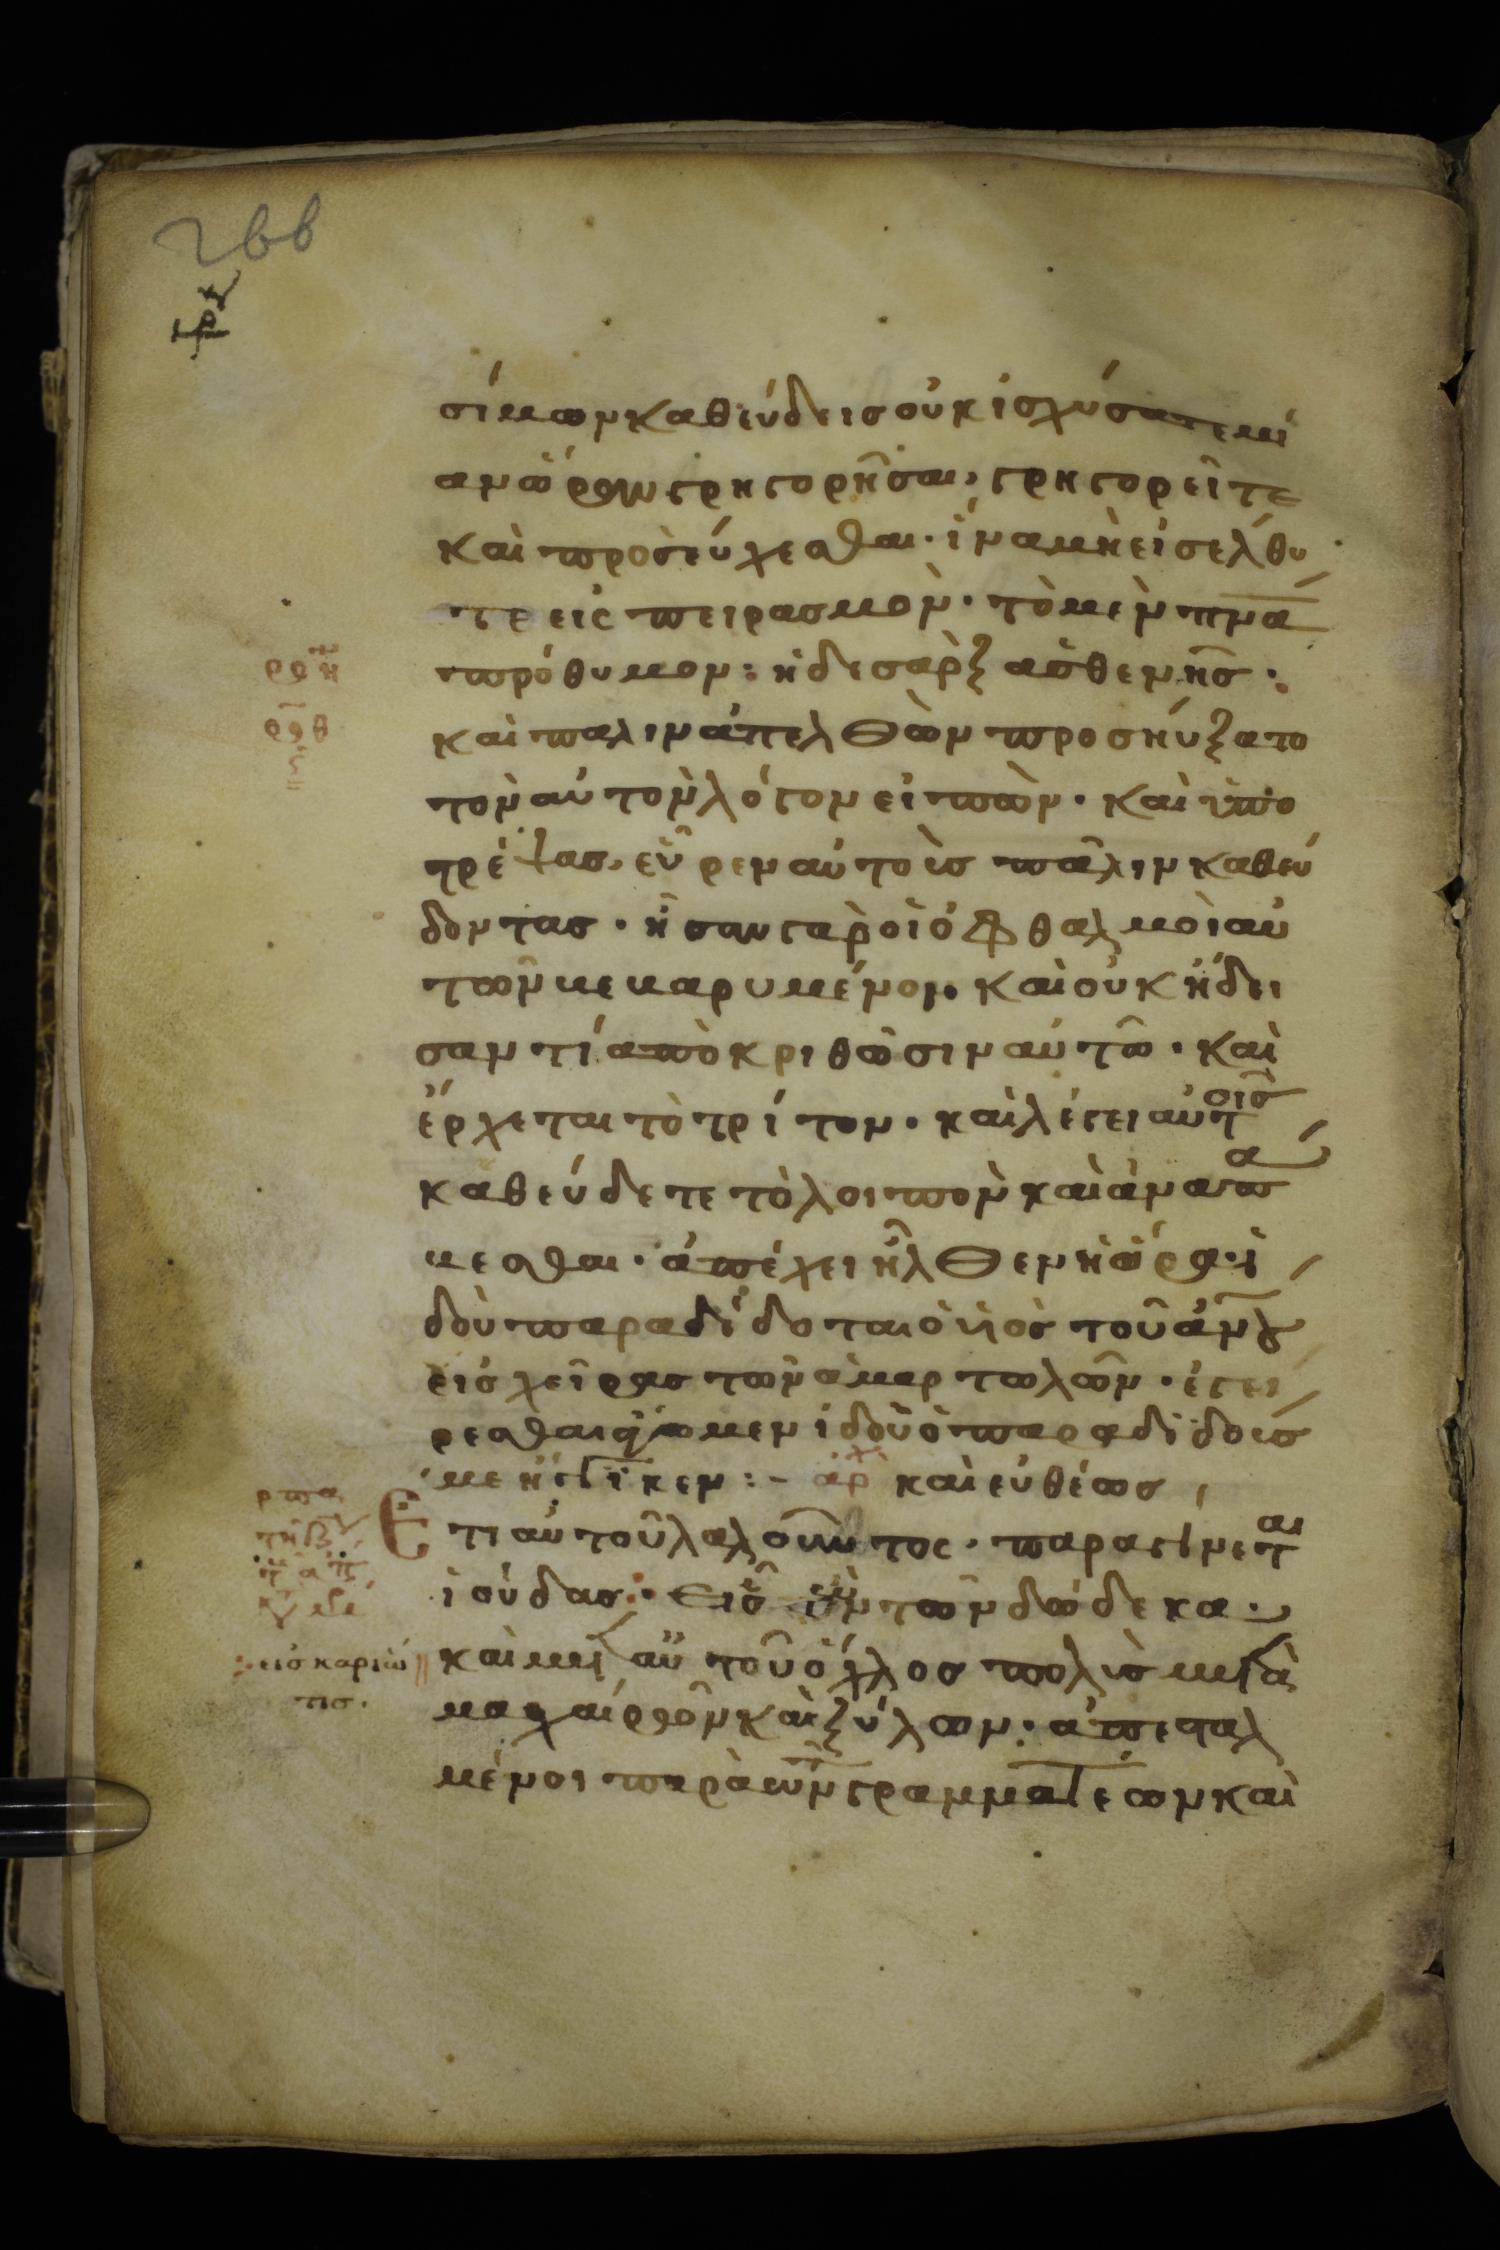 266
σίμων καθεύδεισ οὐκ ἰσχύσατε μί
αν ὥραν γρηγορῆσαι, γρηγορεῖτε
καὶ προσεύχεσθαι· ἵνα μὴ εἰσέλθη
τε εἰς πειρασμὸν· τὸ μὲν πνα
πρόθυμον: ἡ δε σὰρξ ἀσθενὴσ:
καὶ παλιν ἀπελθὼν προσηύξατο
τὸν αὐτὸν λόγον εἰπὼν· καὶ ὑπο
τρέψασ, εὗρεν αὐτοὺσ πάλιν καθεύ
δοντασ· ἦσαν γὰρ οἱ ὀφθαλμοὶ αὐ
τῶν κεκαρυμένοι· καὶ οὐκ ἤδει
σαν τί ἀποκριθῶσιν αὐτῶ· καὶ
ἔρχεται τὸ τρίτον· καὶ λέγει αὐτοῖσ
καθεύδετε τὸ λοιπὸν καὶ ἀναπα
υεσθαι· ἀπέχει ἦλθεν ἡ ὥρα· ἰ
δοὺ παραδίδοται ὁ υἱὸσ τοῦ ἀνου
εἰσ χεῖρασ τῶν ἁμαρτωλῶν· ἐγεί
ρεσθαι ἄγωμεν ἰδοὺ ὁ παραδιδούσ
με ἤγγικεν:- ἀρχ καὶ εὐθέωσ
Ἔτι αὐτοῦ λαλοῦντος· παραγίνεται
ἰούδασ: εἷσ ὢν τῶν δώδεκα·
εἰσκαριώ
τισ·
καὶ μετ αὐτοῦ ὄχλοσ πολὺσ μετὰ
μαχαιρῶν καὶ ξύλων· ἀπεσταλ
μένοι παρὰ τῶν γραμματέων καὶ